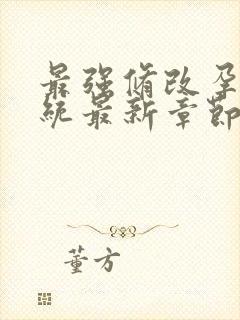 最强脩改孕
统最新章节
董方